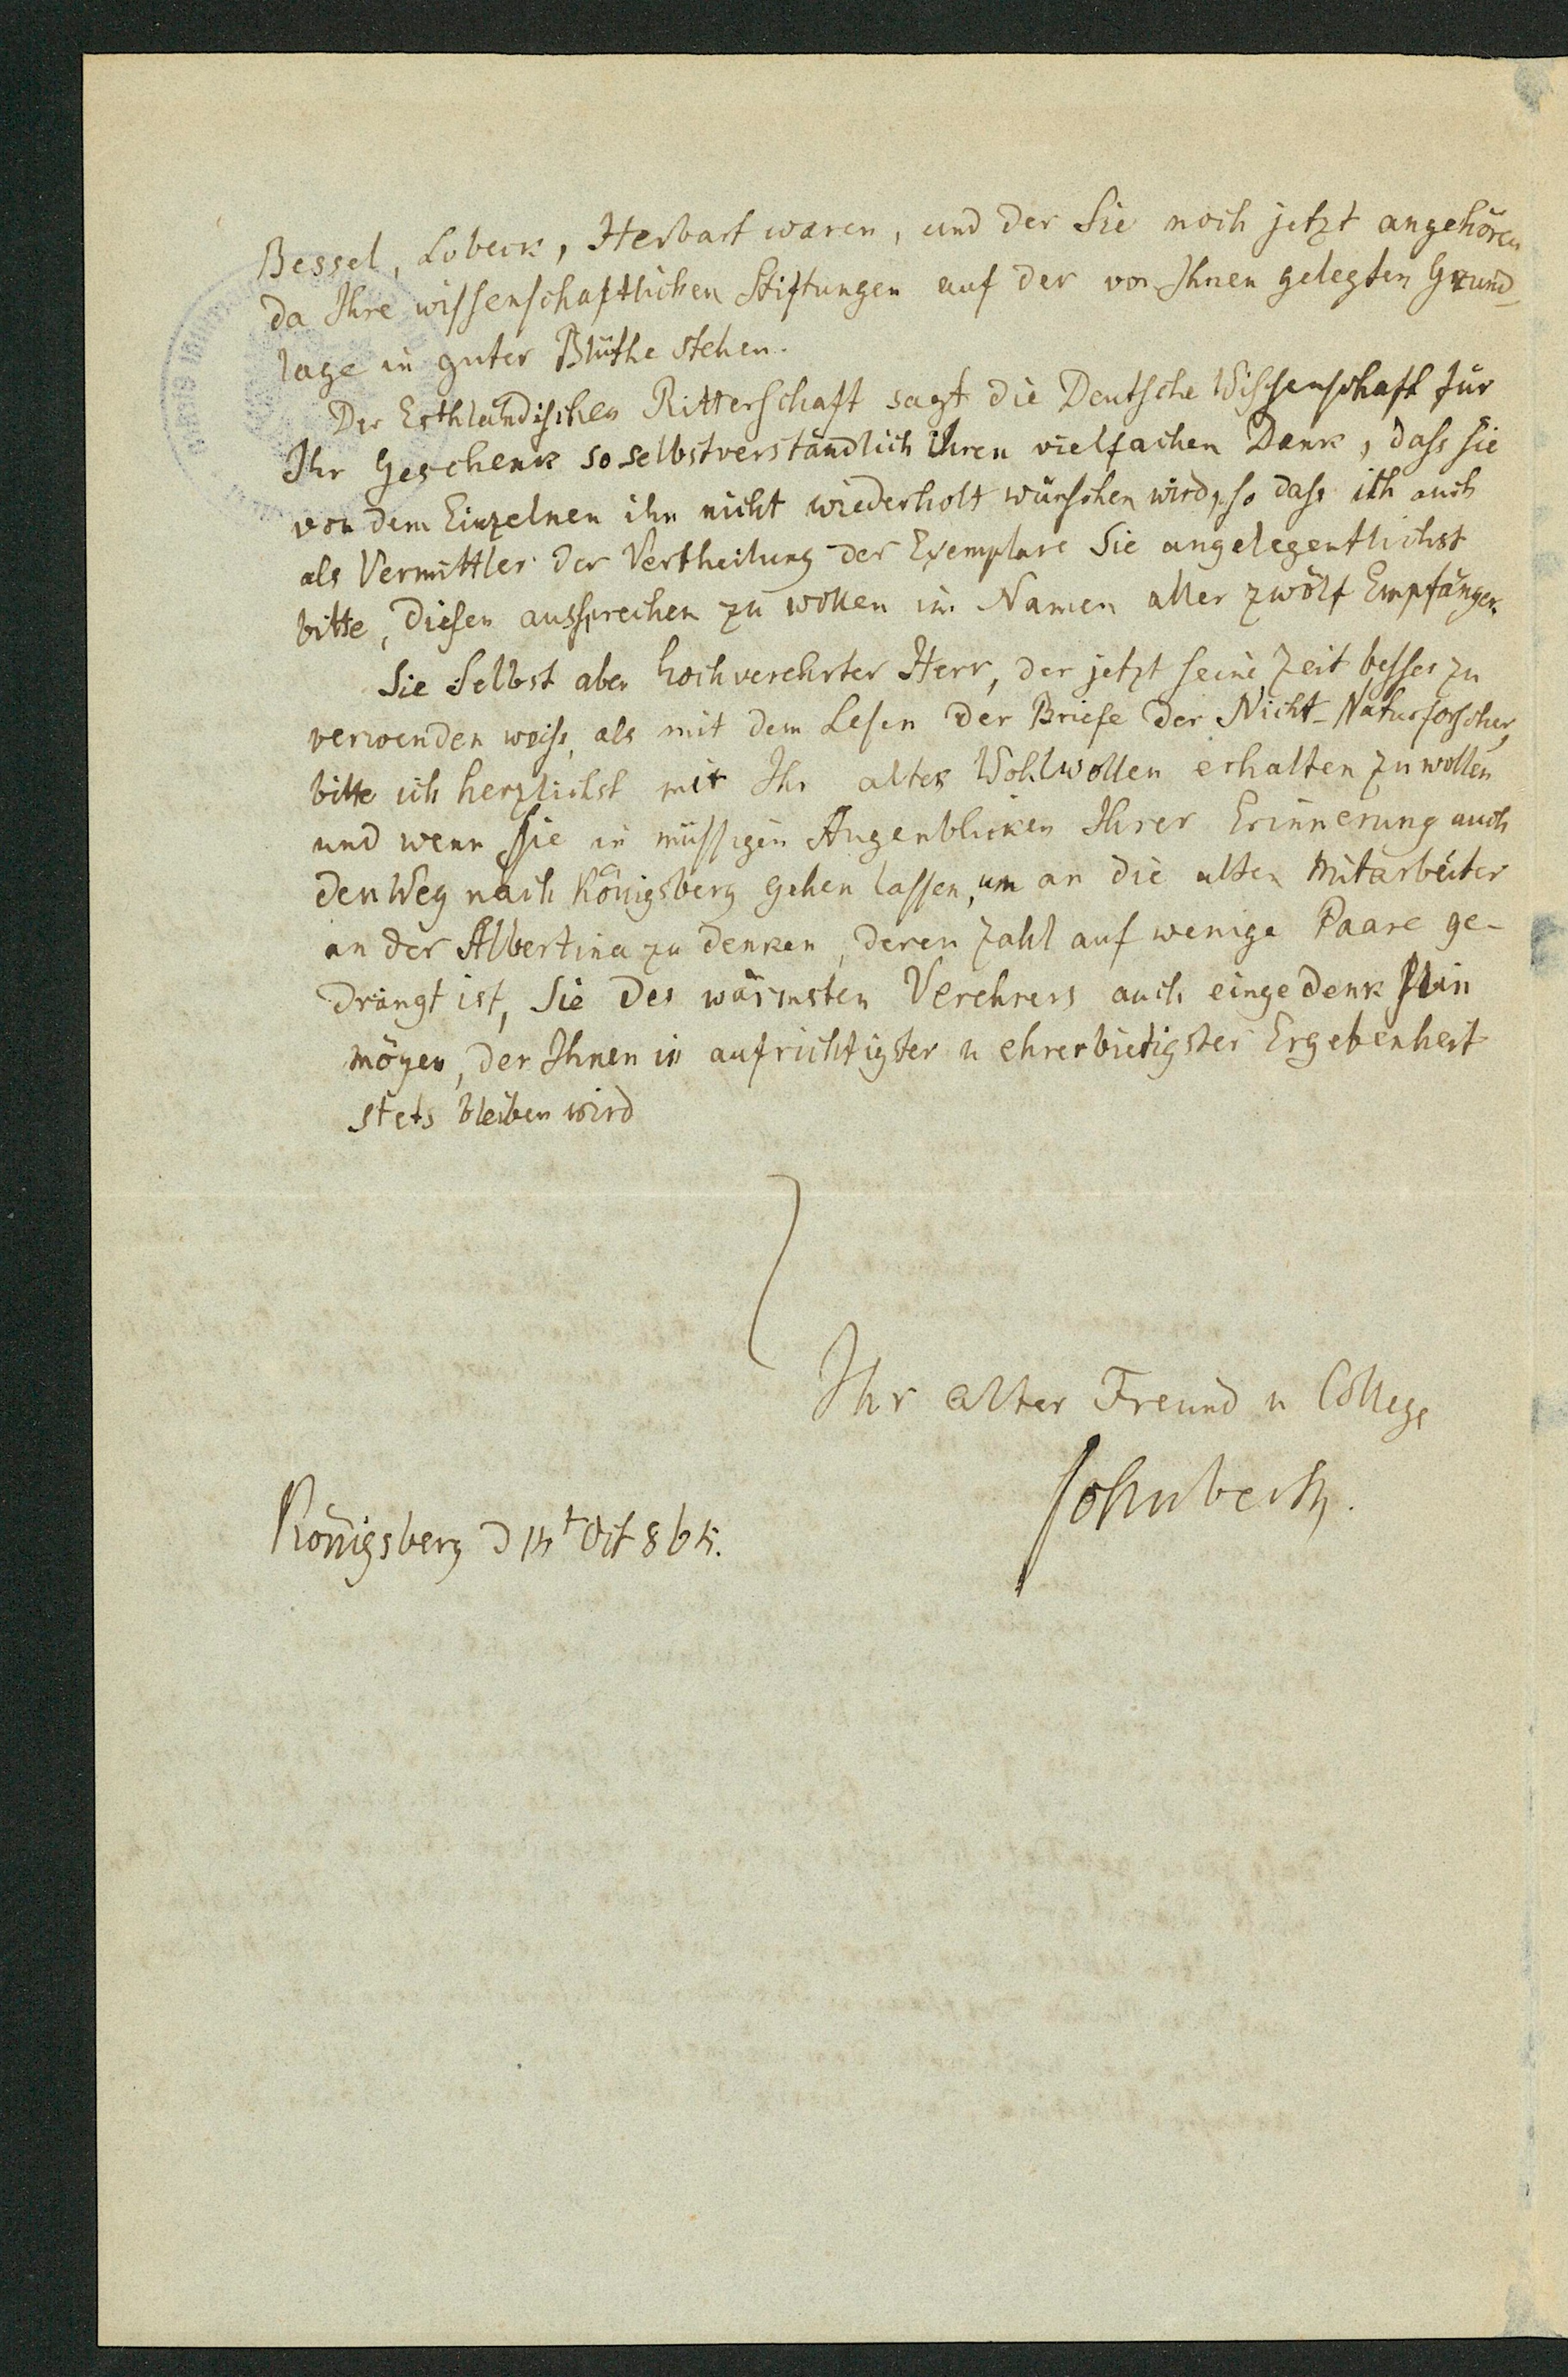 Bessel, Lobeck, Herbart waren, und der Sie noch jetzt angehören
da Ihre wissenschaftlichen Stiftungen auf der von Ihnen gelegten Grund-
lage in guter Blüthe stehen.
Der Esthländischen Ritterschaft sagt die Deutsche Wissenschaft für
Ihr Geschenk so selbstverständlich ihren vielfachen Dank, dass sie
von dem Einzelnen ihn nicht wiederholt wünschen wird, so dass ich auch
als Vermittler der Vertheilung der Exemplare Sie angelegentlichst
bitte, diesen aussprechen zu wollen im Namen aller zwölf Empfänger.
Sie Selbst aber hochverehrter Herr, der jetzt seine Zeit besser zu
verwenden weiss, als mit dem Lesen der Briefe der Nicht-Naturforscher,
bitte ich herzlichst mir Ihr altes Wohlwollen erhalten zu wollen
und wenn Sie in müssigen Augenblicken Ihrer Erinnerung auch
den Weg nach Königsberg gehen lassen, um an die alten Mitarbeiter
an der Albertina zu denken, deren Zahl auf wenige Paare ge-
drängt ist, Sie des wärmsten Verehrers auch eingedenk sein
mögen, der Ihnen in aufrichtigster u ehrerbietigster Ergebenheit
stets bleiben wird
Ihr alter Freund u College
Schubert.
Königsberg d Oct 865.